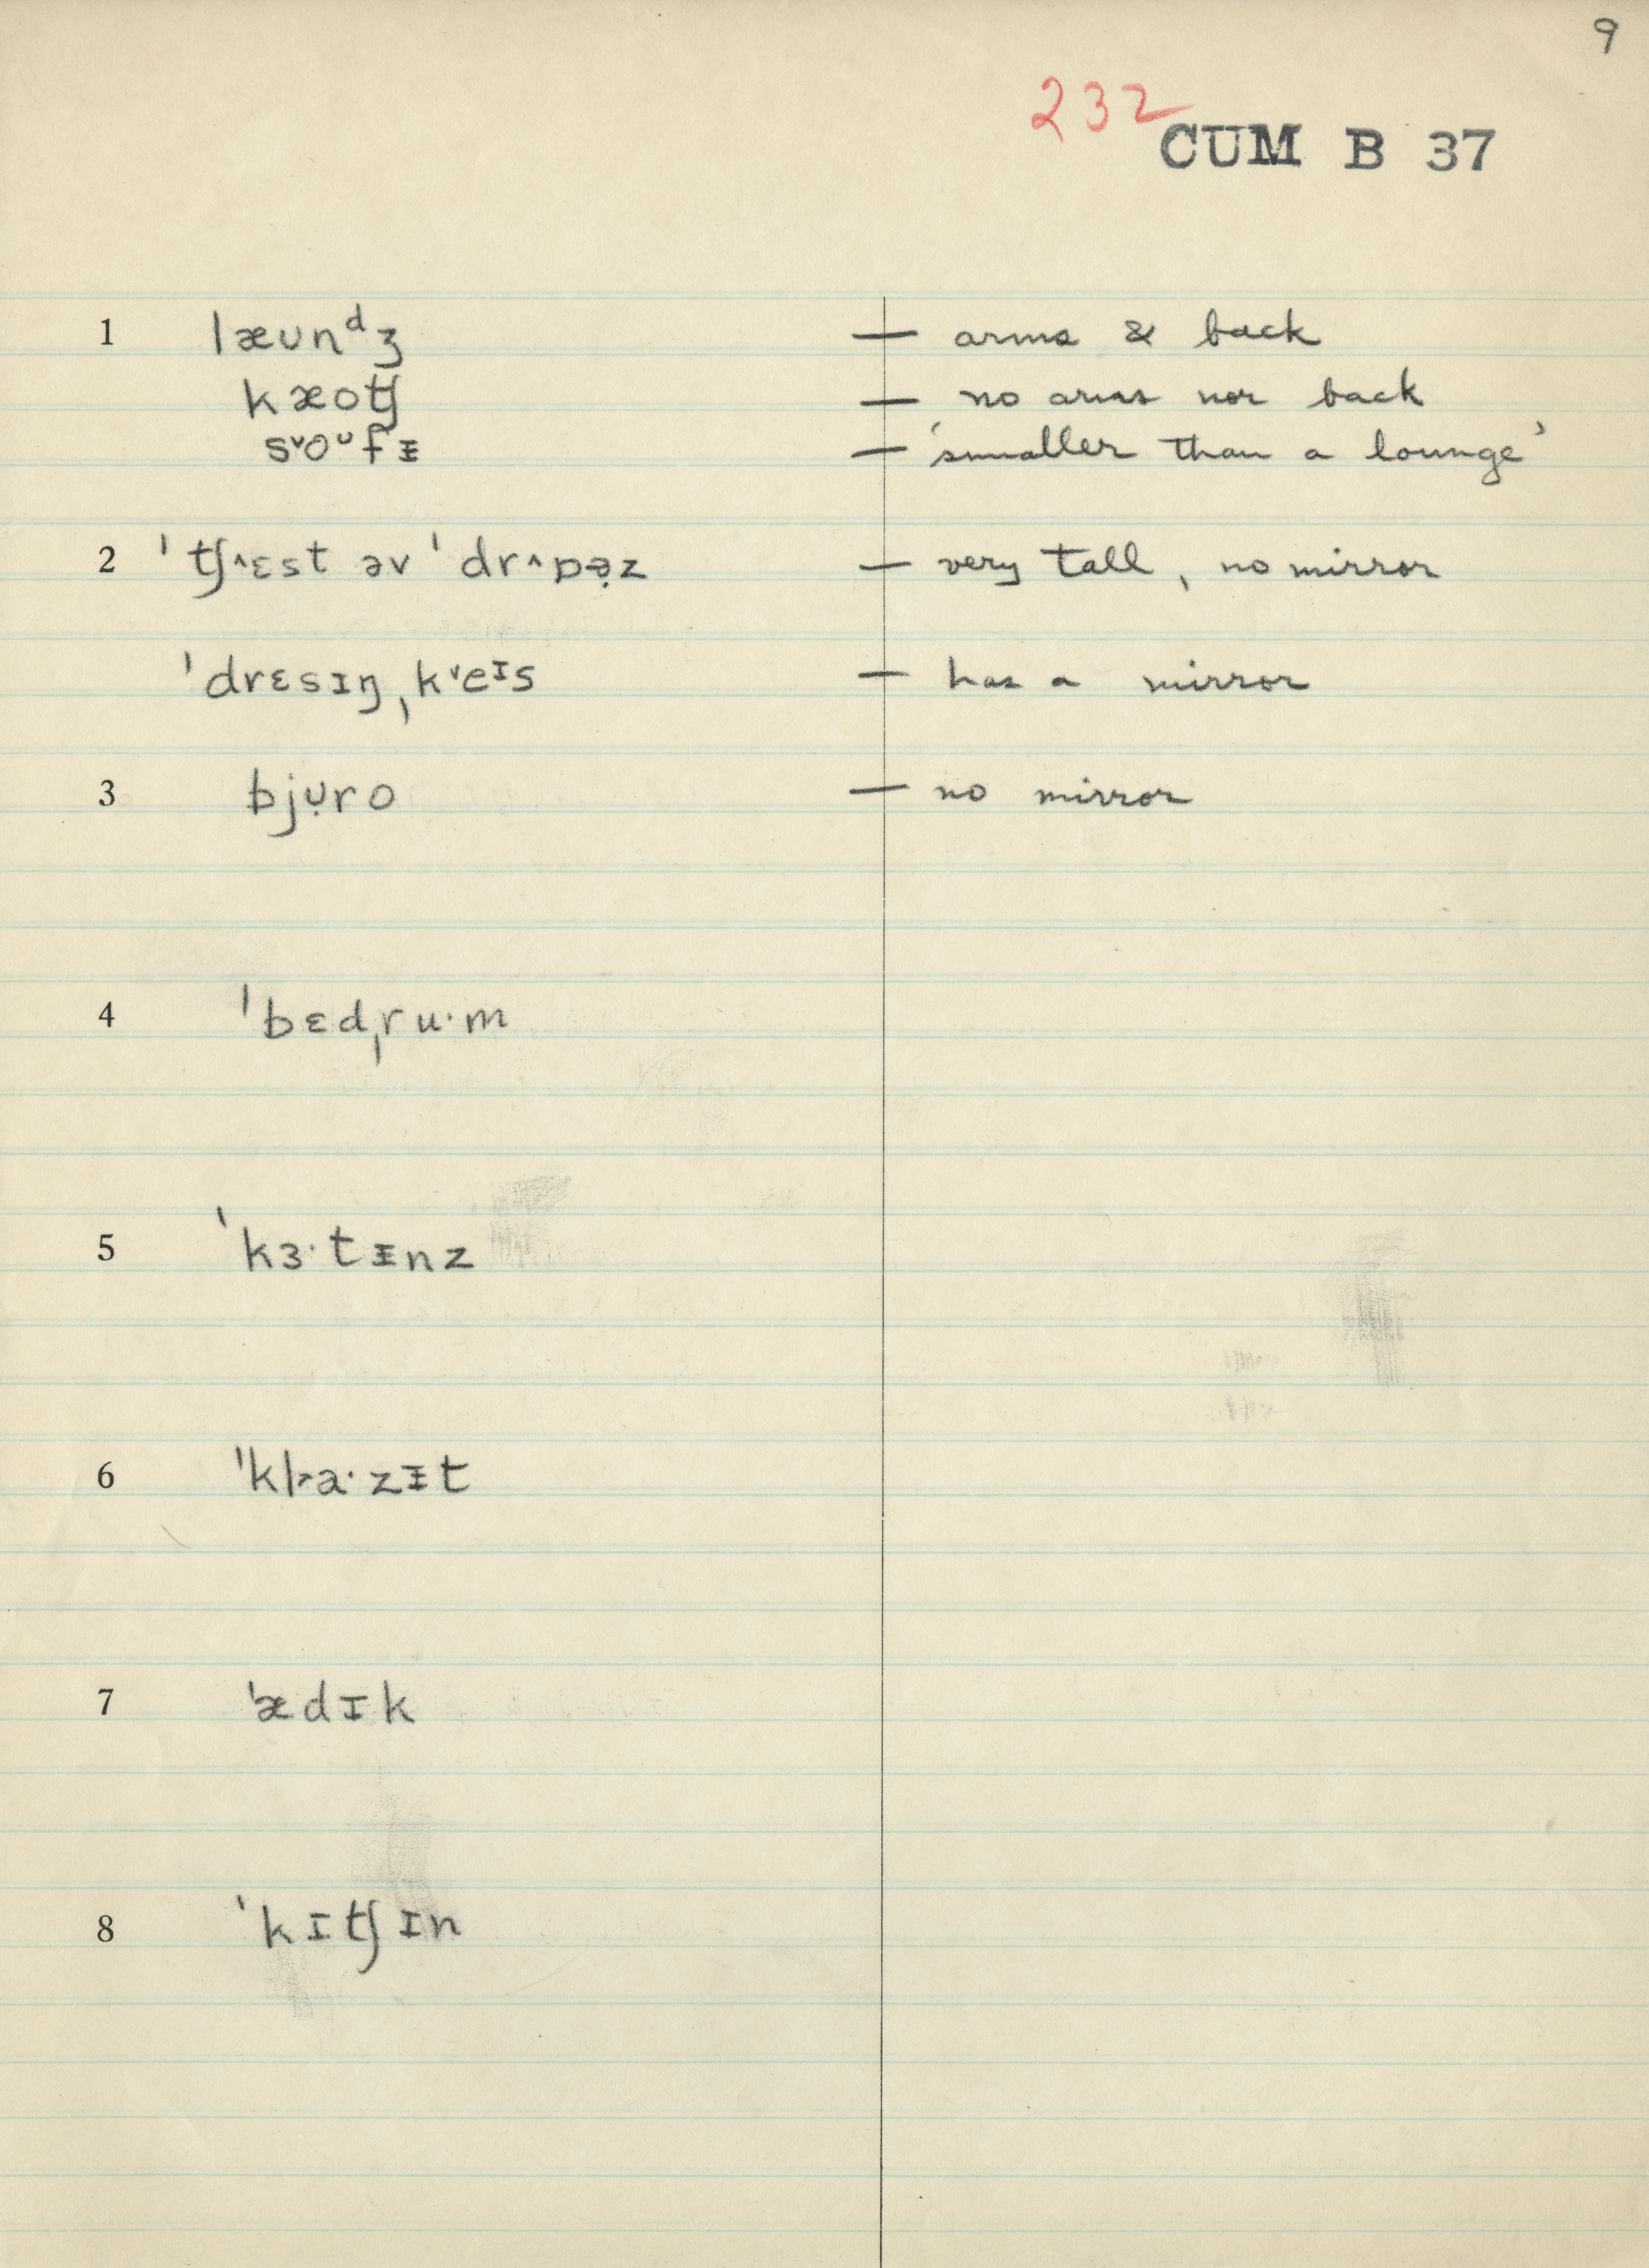 9
232
CUM B 37
1 læʊnᵈʒ — arms & back
kæoʧ — no arms nor back
s˅oᶷfᵻ — 'smaller than a lounge'
2 ˈʧ^ɛst əv ˈdr^ɒə̣z — very tall, no mirror
ˈdrɛsɪŋˌk˅eᶦs — has a mirror
3 bjʊ̣ro — no mirror
4 ˈbɛdˌru·m
5 ˈkɜ·tᵻnz
6 ˈkl˃a·zᵻt
7 ˈædɪk
8 ˈkɪʧɪn